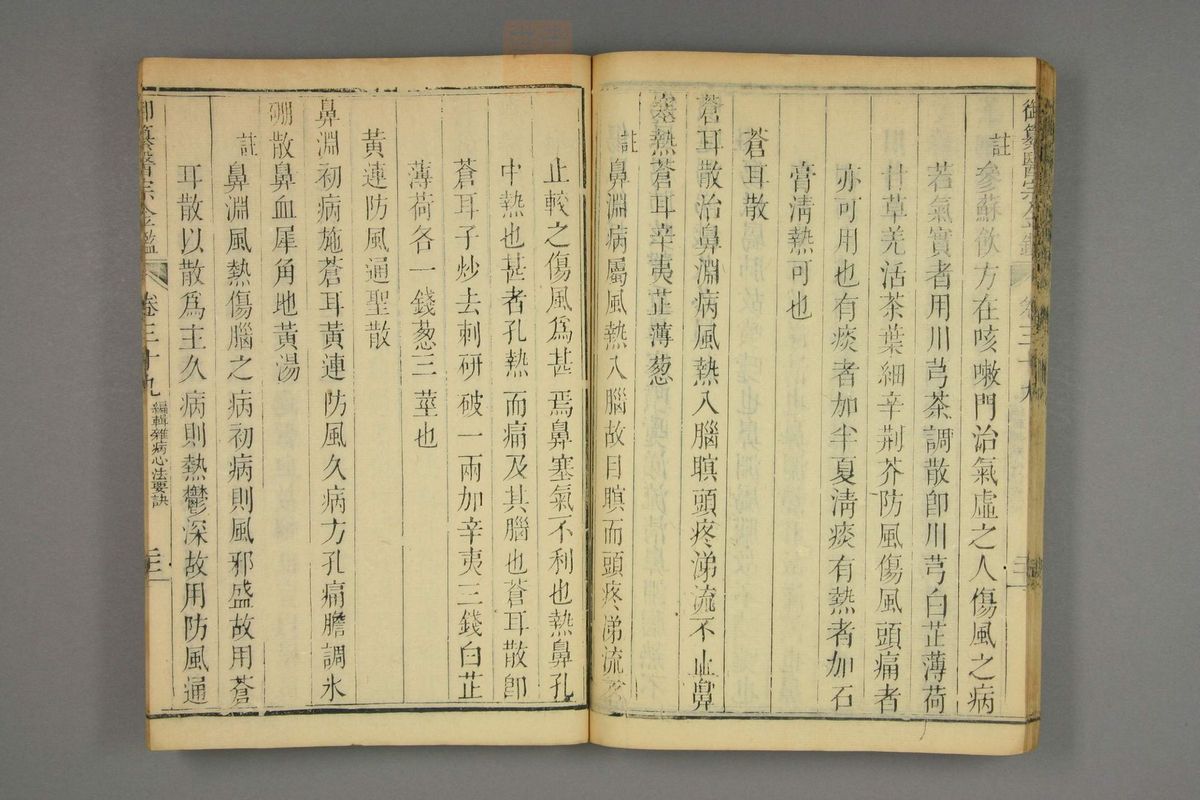 御纂醫宗金鑑 卷三十九
註參蘇飲方在咳嗽門治氣虛之人傷風之病
若氣實者用川芎茶調散卽川芎白芷薄荷
甘草羌活茶葉細辛荆芥防風傷風頭痛者
亦可用也有痰者加半夏淸痰有熱者加石
膏淸熱可也
蒼耳散
蒼耳散治鼻淵病風熱入腦瞑頭疼涕流不止鼻
塞熱蒼耳辛夷芷薄葱
註鼻淵病屬風熱入腦故目瞑而頭疼涕流不
止較之傷風爲甚焉鼻塞氣不利也熱鼻孔
中熱也甚者孔熱而痛及其腦也蒼耳散卽
蒼耳子炒去刺研破一兩加辛夷三錢白芷
薄荷各一錢葱三莖也
黃連防風通聖散
鼻淵初病施蒼耳黃連防風久病方孔痛膽調氷
硼散鼻血犀角地黃湯
註鼻淵風熱傷腦之病初病則風邪盛故用蒼
耳散以散爲主久病則熱鬱深故用防風通
御纂醫宗金鑑 卷三十九 編輯雜病心法要訣